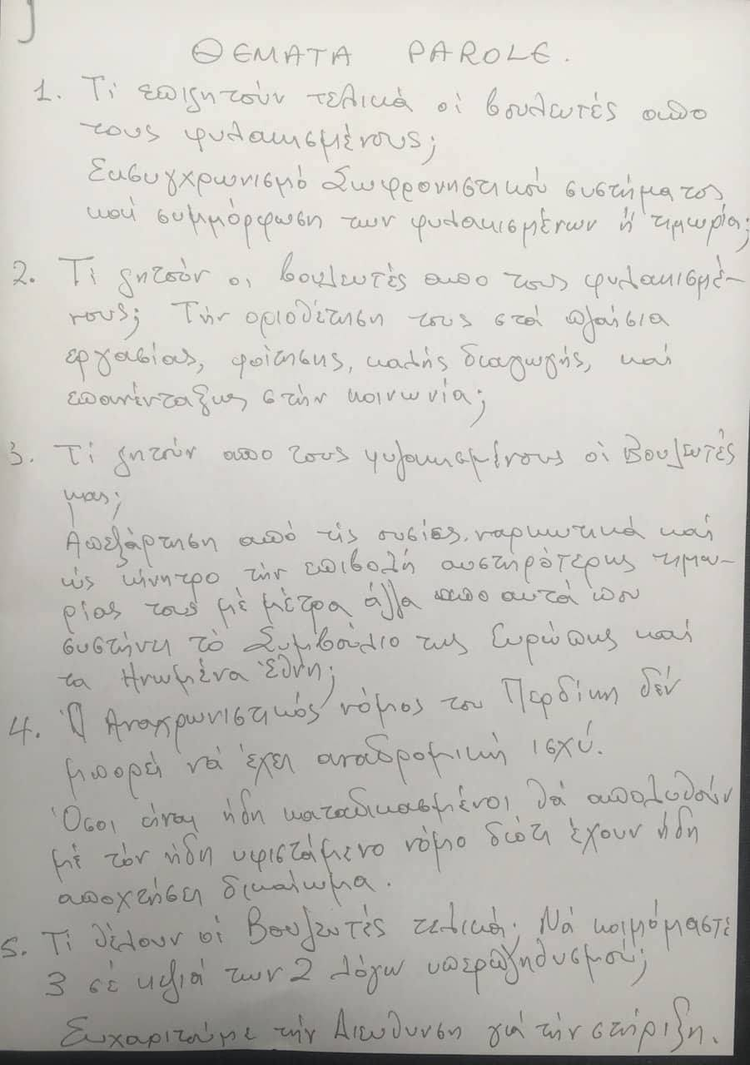 ΘΕΜΑΤΑ PAROLE.
1. Τί επιζητούν τελικά οί βουλευτές απο
τους φυλακισμένους;
Εκσυγχρωνισμό Σωφρονηστικού συστήματος
καί συμμόρφωση των φυλακισμένων ή τιμωρία;
2. Τί ζητούν οι βουλευτές απο τους φυλακισμέ-
νους; Τήν οριοθέτηση τους στά πλαίσια
εργασίας, φοίτησης, καλής διαγωγής, καί
επανένταξης στήν κοινωνία;
3. Τί ζητούν απο τους φυλακισμένους οι Βουλευτές
μας;
Απεξάρτηση από τίς ουσίες, ναρκωτικά καί
ώς κίνητρο τήν επιβολή αυστηρότερης τιμω-
ρίας τους μέ μέτρα άλλα απο αυτά που
συστήνει τό Συμβούλιο της Ευρώπης καί
τα Ηνωμένα Έθνη;
4. Ο Αναχρωνιστικός νόμος του Περδίκη δέν
μπορεί νά έχει αναδρομική ισχύ.
Όσοι είναι ήδη καταδικασμένοι θά απολυθούν
μέ τόν ήδη υφιστάμενο νόμο διότι έχουν ήδη
αποχτήσει δικαίωμα.
5. Τί θέλουν οί Βουλευτές τελικά; Νά κοιμόμαστε
3 σέ κελιά των 2 λόγω υπερπληθυσμού;
Ευχαριτούμε τήν Διεύθυνση γιά τήν στήριξη.